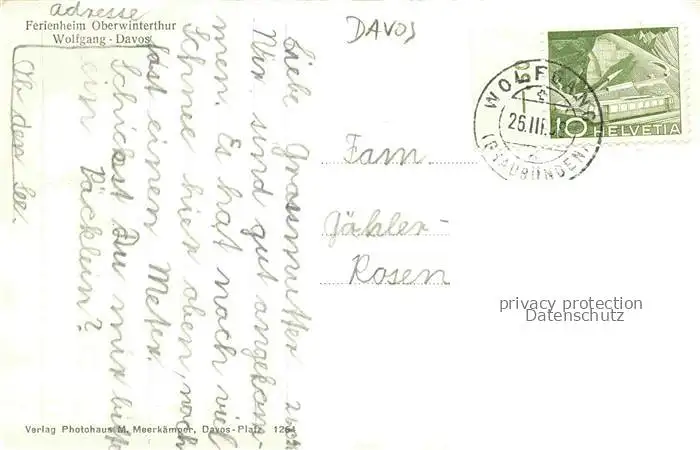 adresse
Ferienheim Oberwinterthur
Wolfgang - Davos
DAVOS
Liebe Grossmutter
Wir sind gut angekom-
men. Es hat noch viel
Schnee hier oben, noch
fast einen Meter.
Schickst Du mir bitte
ein Päcklein?
Ob den See.
Fam
Gähler-
Rosen
WOLFGANG
26.III.
(GRAUBÜNDEN)
10 HELVETIA
privacy protection
Datenschutz
Verlag Photohaus M. Meerkämper, Davos-Platz 1264